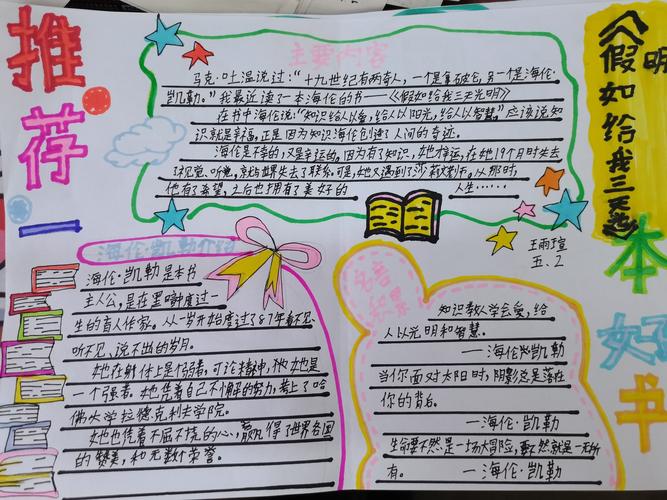 推荐一
本好书
《假如给我三天光明》
主要内容
马克·吐温说过:“十九世纪有两奇人,一个是拿破仑,另一个是海伦·
凯勒。”我最近读了一本海伦的书——《假如给我三天光明》
在书中海伦说:“知识给人以爱,给人以阳光,给人以智慧。”应该说知
识就是幸福,正是因为知识海伦创造了人间的奇迹。
海伦是不幸的,又是幸运的,因为有了知识,她幸运,在她19个月时失去
了视觉、听觉,
可是,她又遇到了莎莉文老师。从那时,
他有了希望,之后也拥有了美好的 人生……
王雨瑄
五、2
海伦·凯勒介绍
海伦·凯勒是本书
主人公,是在黑暗中度过一
生的盲人作家。从一岁开始度过了87年看不见、
听不见、说不出的岁月。
她在身体上是个弱者,可论精神,她是
一个强者。她凭着自己不懈的努力,考上了哈
佛大学拉德克利夫学院。
她也凭着不屈不挠的心,赢得了世界各国
的赞美,和无数个荣誉。
名言
积累
知识教人学会爱,给
人以光明和智慧.
——海伦凯勒
当你面对太阳时,阴影总是落在
你的背后。
——海伦·凯勒
生命要不然是一场大冒险,要么就是一无所
有。 —海伦·凯勒